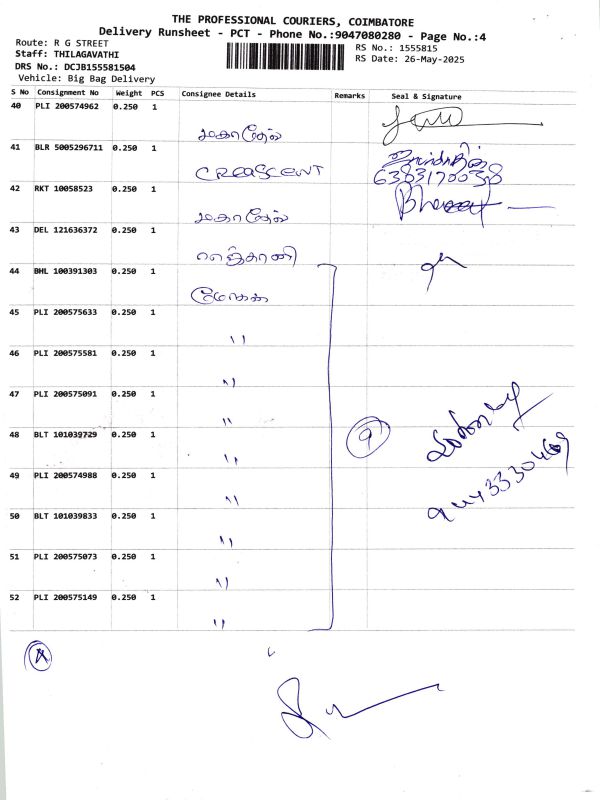 THE PROFESSIONAL COURIERS, COIMBATORE
Delivery Runsheet - PCT - Phone No.:9047080280 - Page No.:4
Route: R G STREET
Staff: THILAGAVATHI
DRS No.: DCJB155581504
Vehicle: Big Bag Delivery
RS No.: 1555815
RS Date: 26-May-2025
S No Consignment No Weight PCS Consignee Details Remarks Seal & Signature
40 PLI 200574962 0.250 1
41 BLR 5005296711 0.250 1
CREASCENT
6383170038
42 RKT 10058523 0.250 1
43 DEL 121636372 0.250 1
44 BHL 100391303 0.250 1
45 PLI 200575633 0.250 1
"
46 PLI 200575581 0.250 1
"
47 PLI 200575091 0.250 1
"
48 BLT 101039729 0.250 1
"
9
49 PLI 200574988 0.250 1
"
9443330469
50 BLT 101039833 0.250 1
"
51 PLI 200575073 0.250 1
"
52 PLI 200575149 0.250 1
"